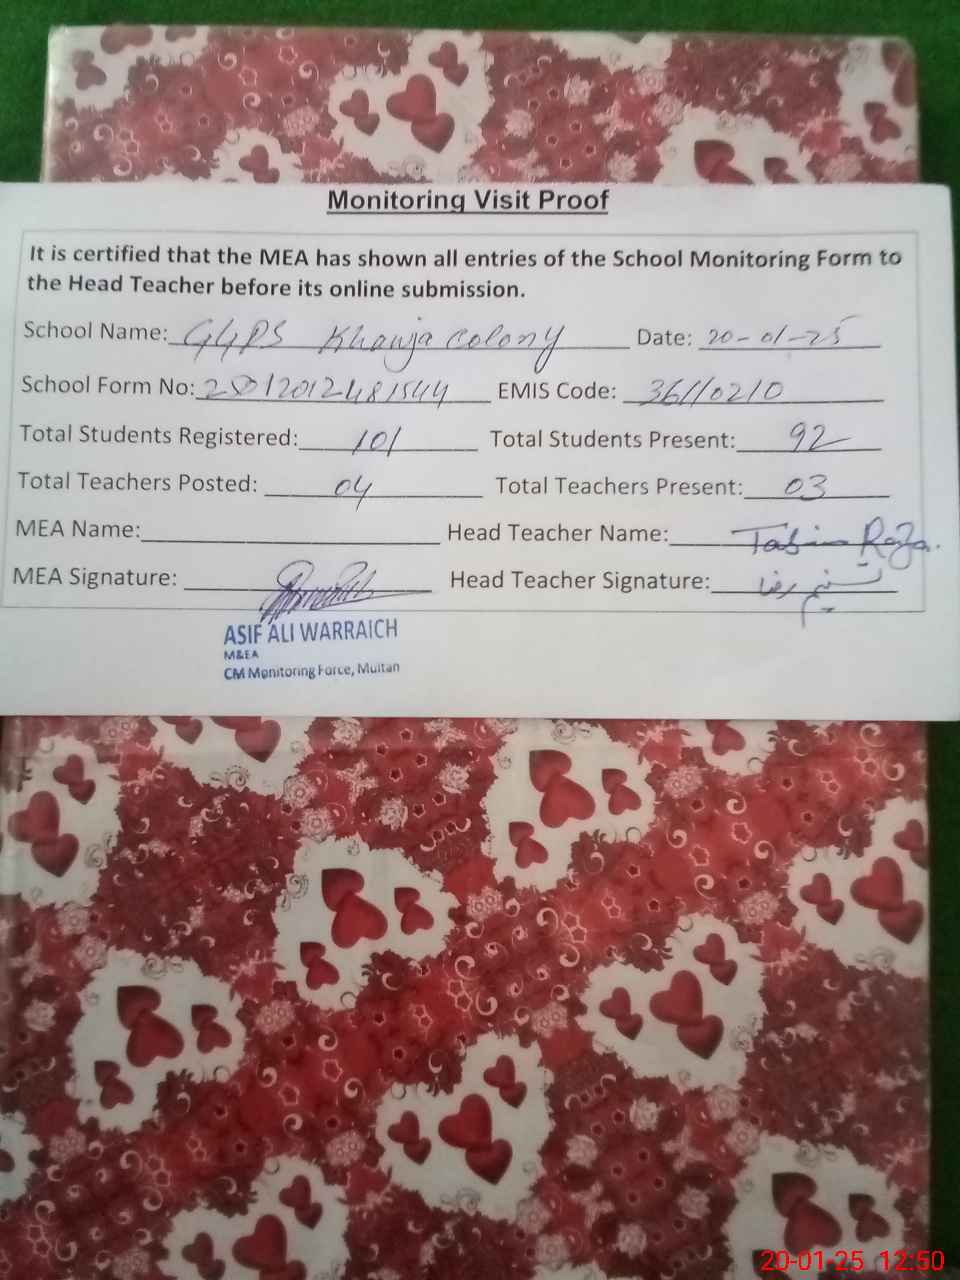 Monitoring Visit Proof
It is certified that the MEA has shown all entries of the School Monitoring Form to
the Head Teacher before its online submission.
School Name: GGPS Khawja Colony Date: 20-01-25
School Form No: 25012012481544 EMIS Code: 36110210
Total Students Registered: 101 Total Students Present: 92
Total Teachers Posted: 04 Total Teachers Present: 03
MEA Name: Head Teacher Name: Raza.
MEA Signature: Head Teacher Signature:
ASIF ALI WARRAICH
M&EA
CM Monitoring Force, Multan
20-01-25 12:50